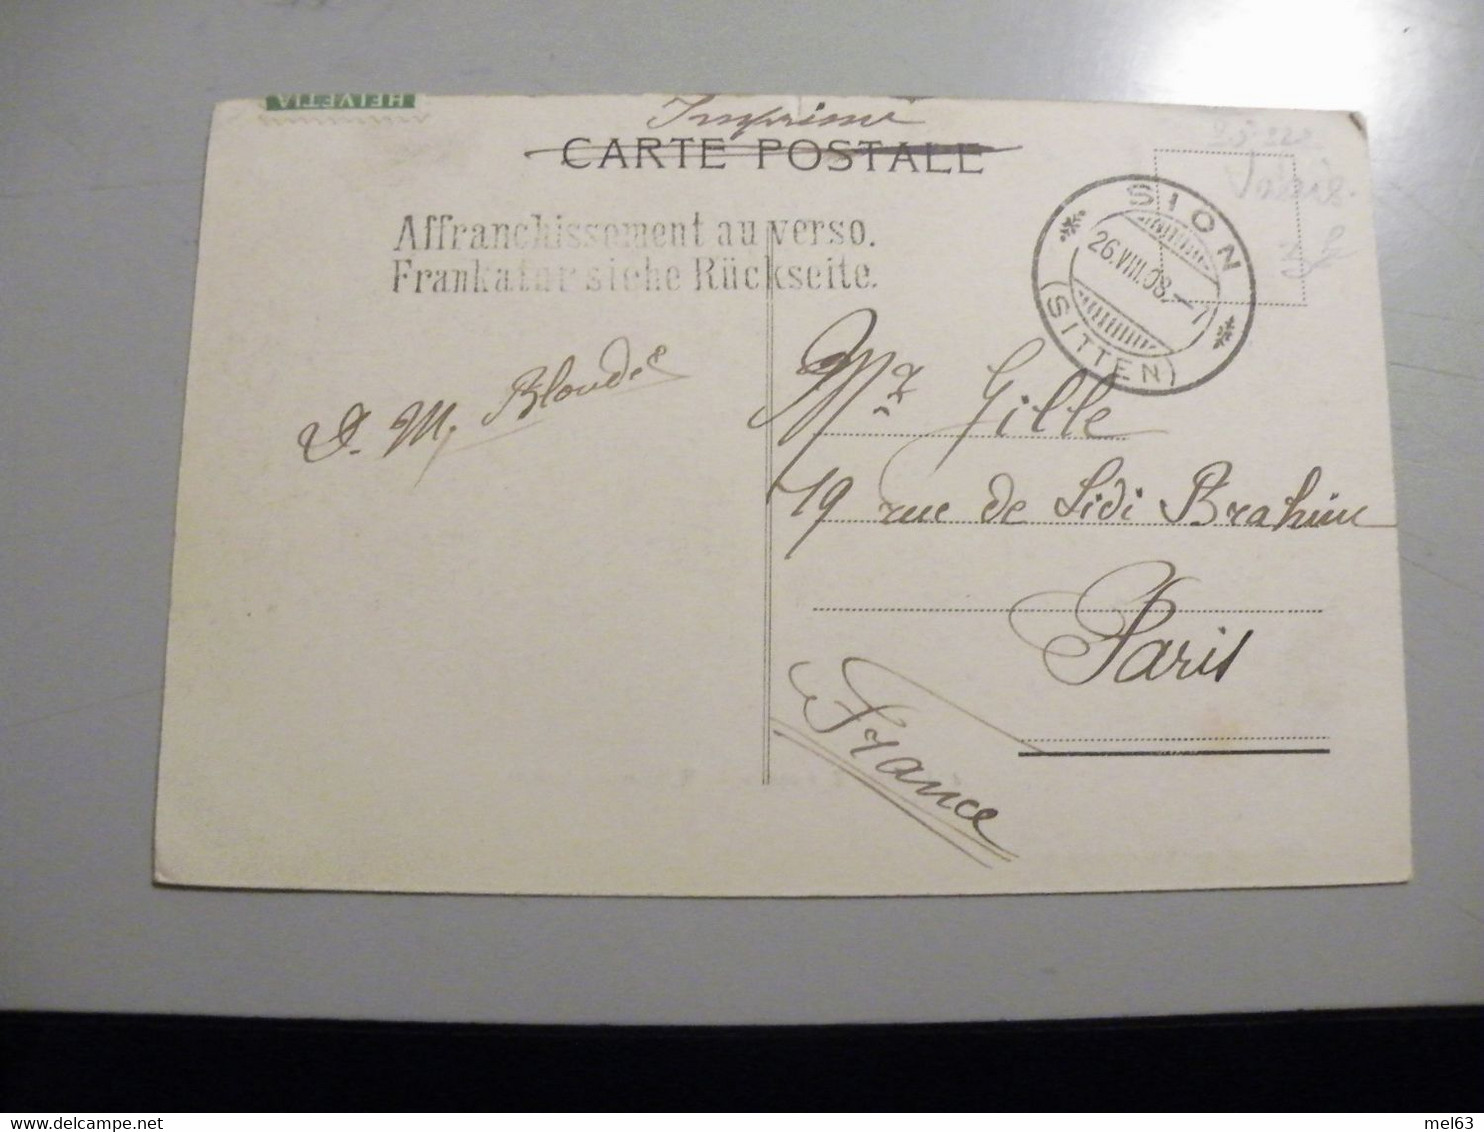 HELVETIA
Imprimé
CARTE POSTALE
Affranchissement au verso.
Frankatur siehe Rückseite.
SION
26.VIII.08.–7
(SITTEN)
Valais.
D. M. Blondel
Mr Gille
19 rue de Sidi Brahim
Paris
France
mel63